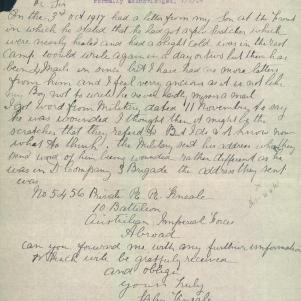 Formally acknowledged.
Dr Sir
On the 3rd Oct 1917 had a letter from my Son at the front
in which he stated that he had got a few scratches which
were nearly healed and had a bright cold was in the rest
camp would write again in a day or two but there has
been Mails in since but I have had no more letters
from him and I feel very anxious as it is not like
my Boy not to write he is well both myself and
I got word from Military dated 11 November to say
he was wounded I thought then it might be the
scratches that they refered to But I do not know now
what to think, the Military sent his address when they
sent word of him being wounded rather different as he
was in D Company 3 Brigade the address they sent
was
No 5456 Private R. R. Kneale
10 Battalion
Australian Imperial Force
Abroad
Can you forward me with any further information
which will be gratefully received
and oblige
Yours truly
John Kneale